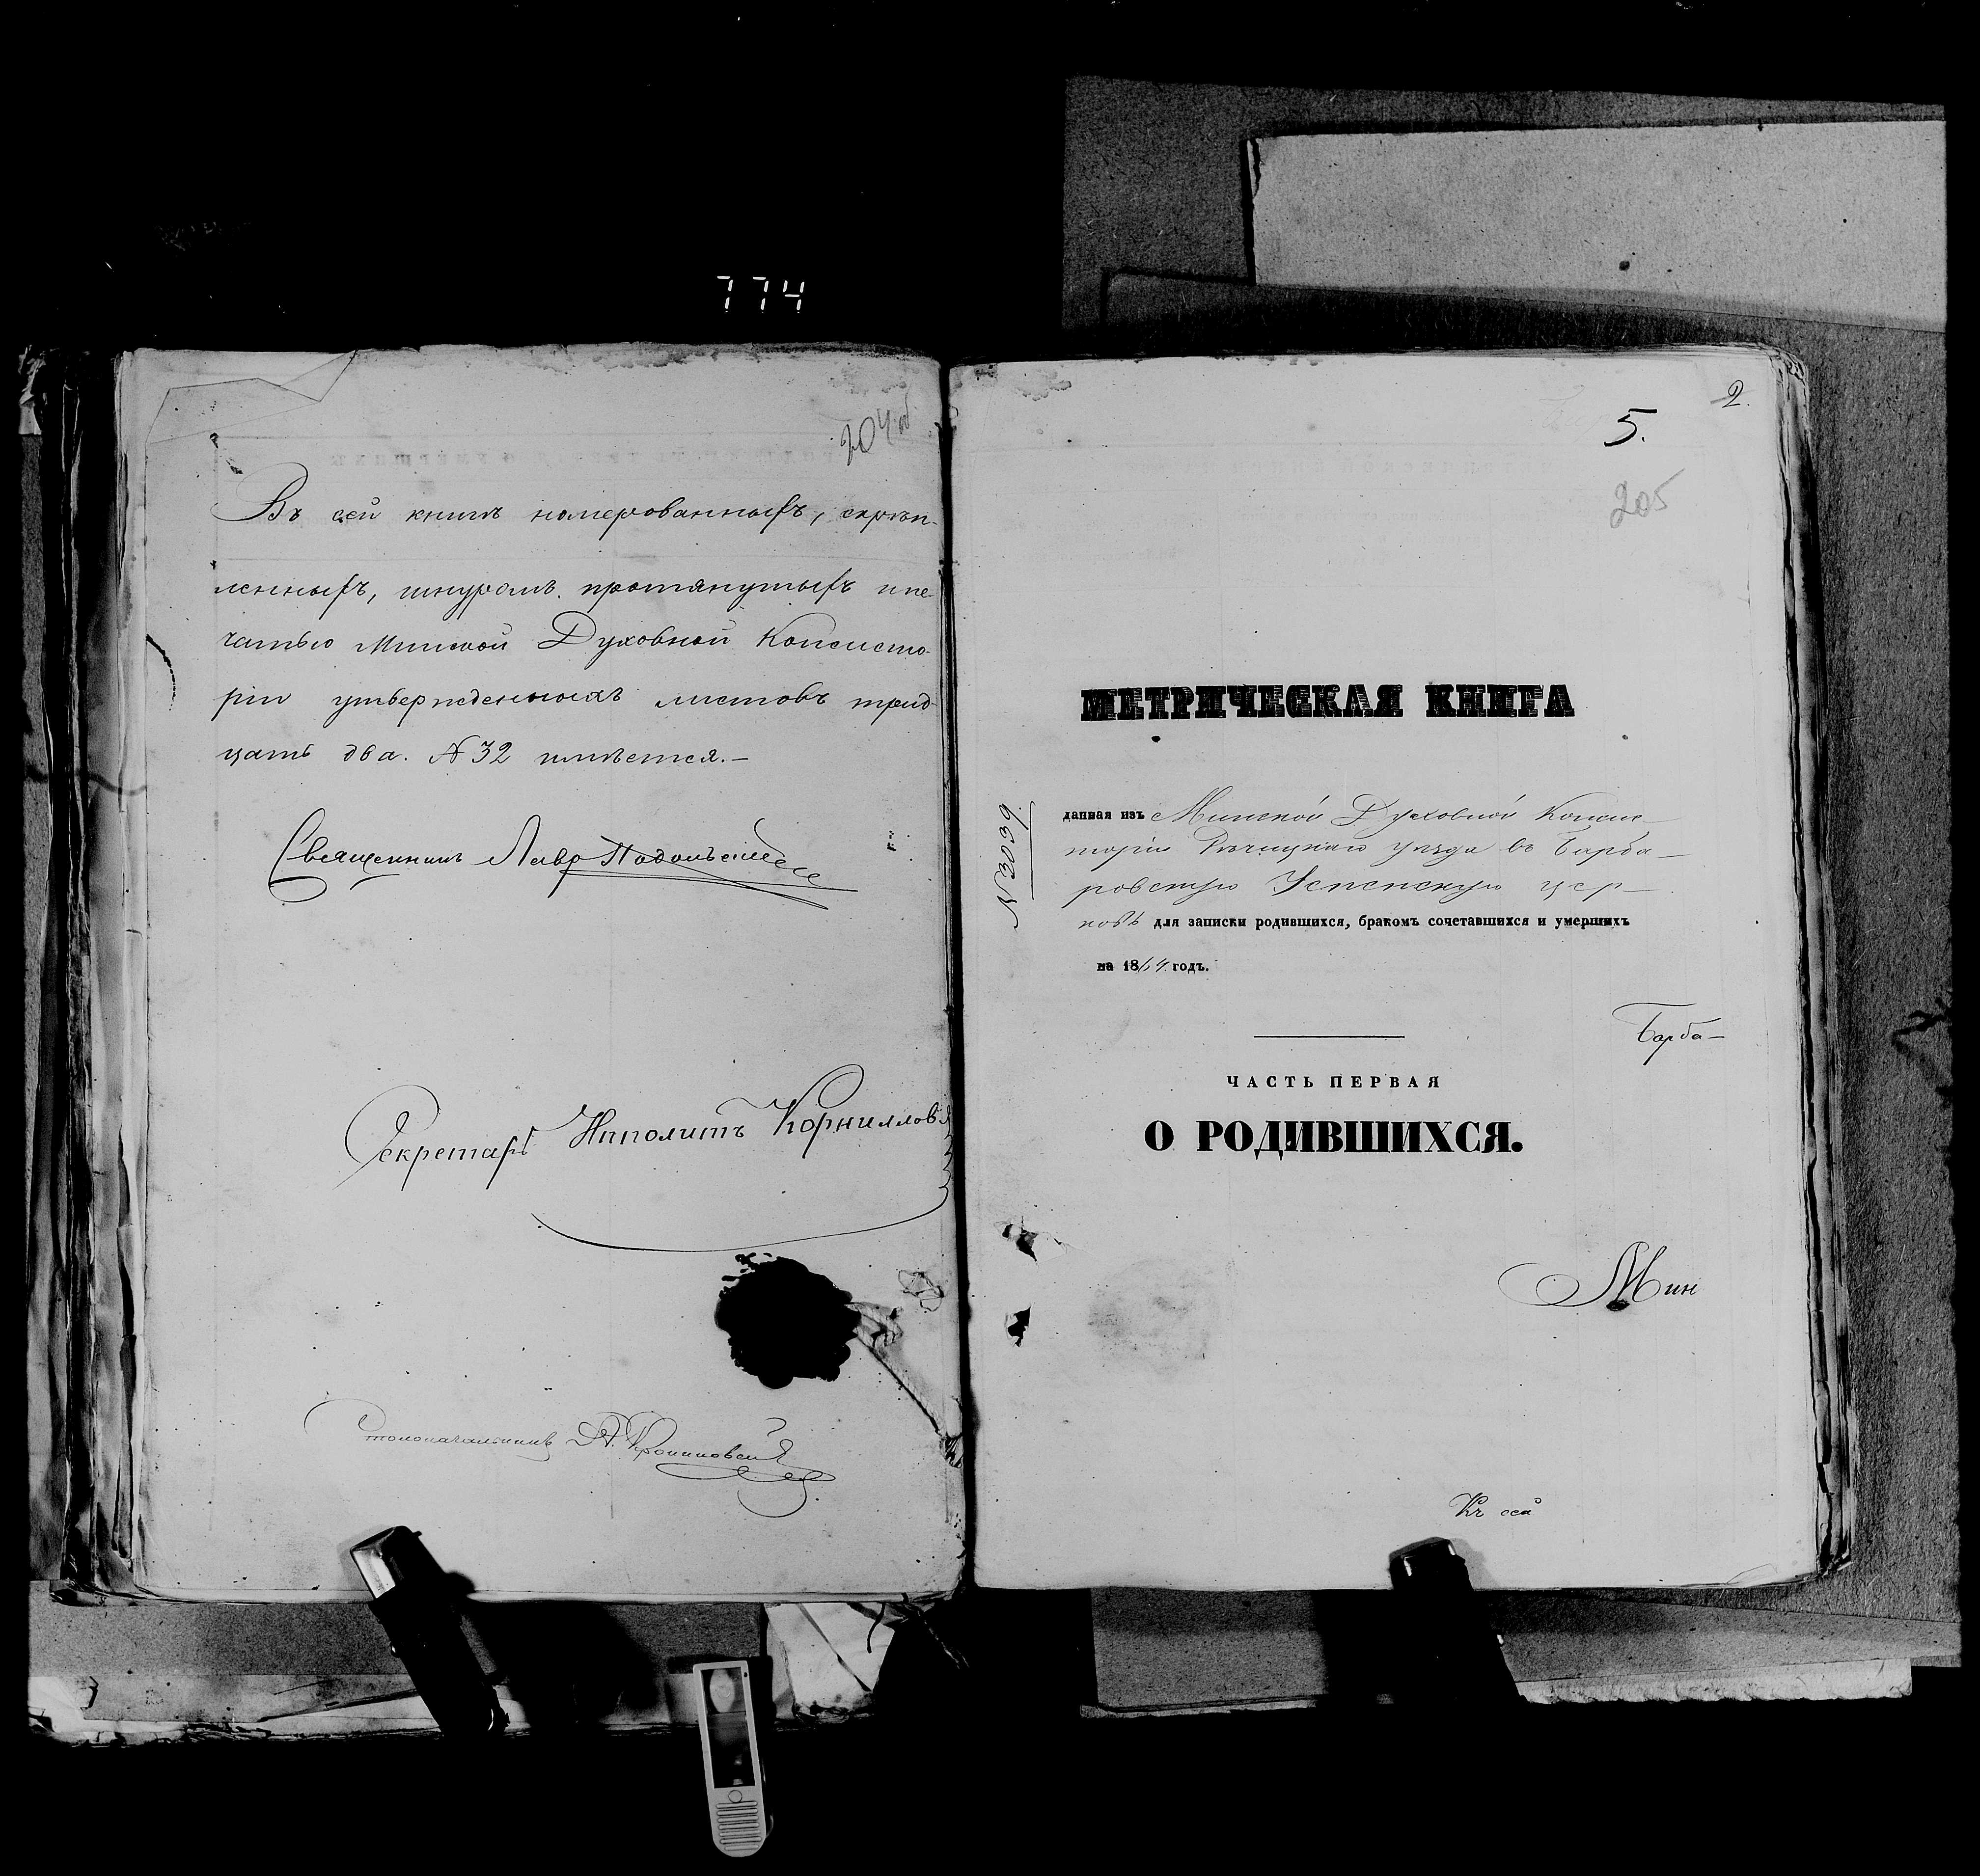 774
204 об
Въ сей книгѣ номерованныхъ, скрѣп-
ленныхъ, шнуромъ протянутыхъ и пе-
чатью Минской Духовной Консисто-
ріи утвержденныхъ листовъ трид-
цать два. N 32 имѣется.—
Священникъ Лавр Подольский
Секретарь Ипполитъ Корниллов
Столоначальникъ А.
2.
5.
205
МЕТРИЧЕСКАЯ КНИГА
N 3039
данная изъ Минской Духовной Консис-
торіи Рѣчицкаго уѣзда въ Барба-
ровскую Успенскую цер-
ковь для записки родившихся, бракомъ сочетавшихся и умершихъ
на 1864. годъ.
Барба-
ЧАСТЬ ПЕРВАЯ
О РОДИВШИХСЯ.
Мин
Къ сей